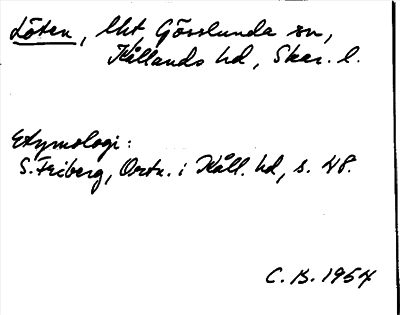 Löten, lht, Gösslunda sn,
Kållands hd, Skar. l.
Etymologi:
S. Friberg, Ortn. i Kåll. hd, s. 48.
C. B. 1954